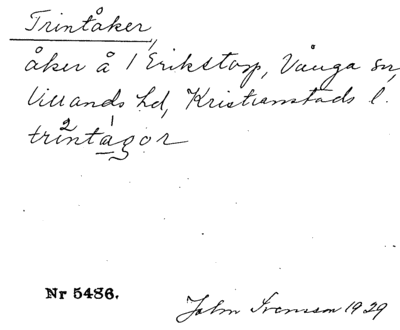 Trintåker,
åker å 1 Erikstorp, Vånga sn,
Villands hd, Kristianstads l.
trintågor
Nr 5486.
John Svensson 1929